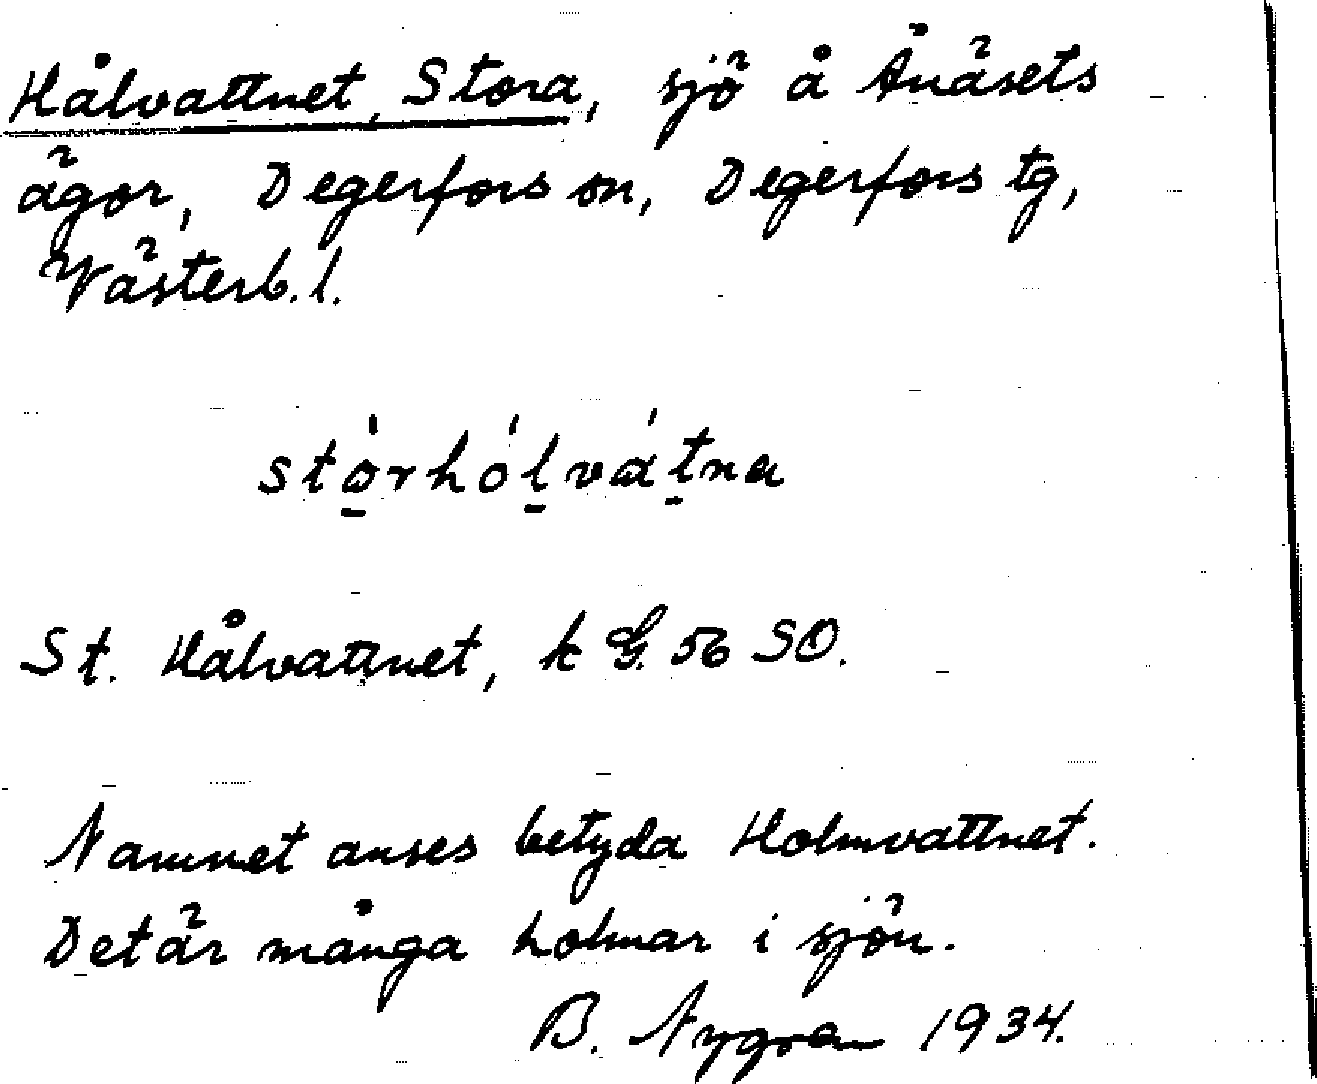 Hålvattnet, Stora, sjö å Ånäsets
ägor, Degerfors sn, Degerfors tg,
Västerb. l.
stò̱rhóḻváṯna
St. Hålvattnet, k G. 56 SO.
Namnet anses betyda Holmvattnet.
Det är många holmar i sjön.
B. Nygren 1934.